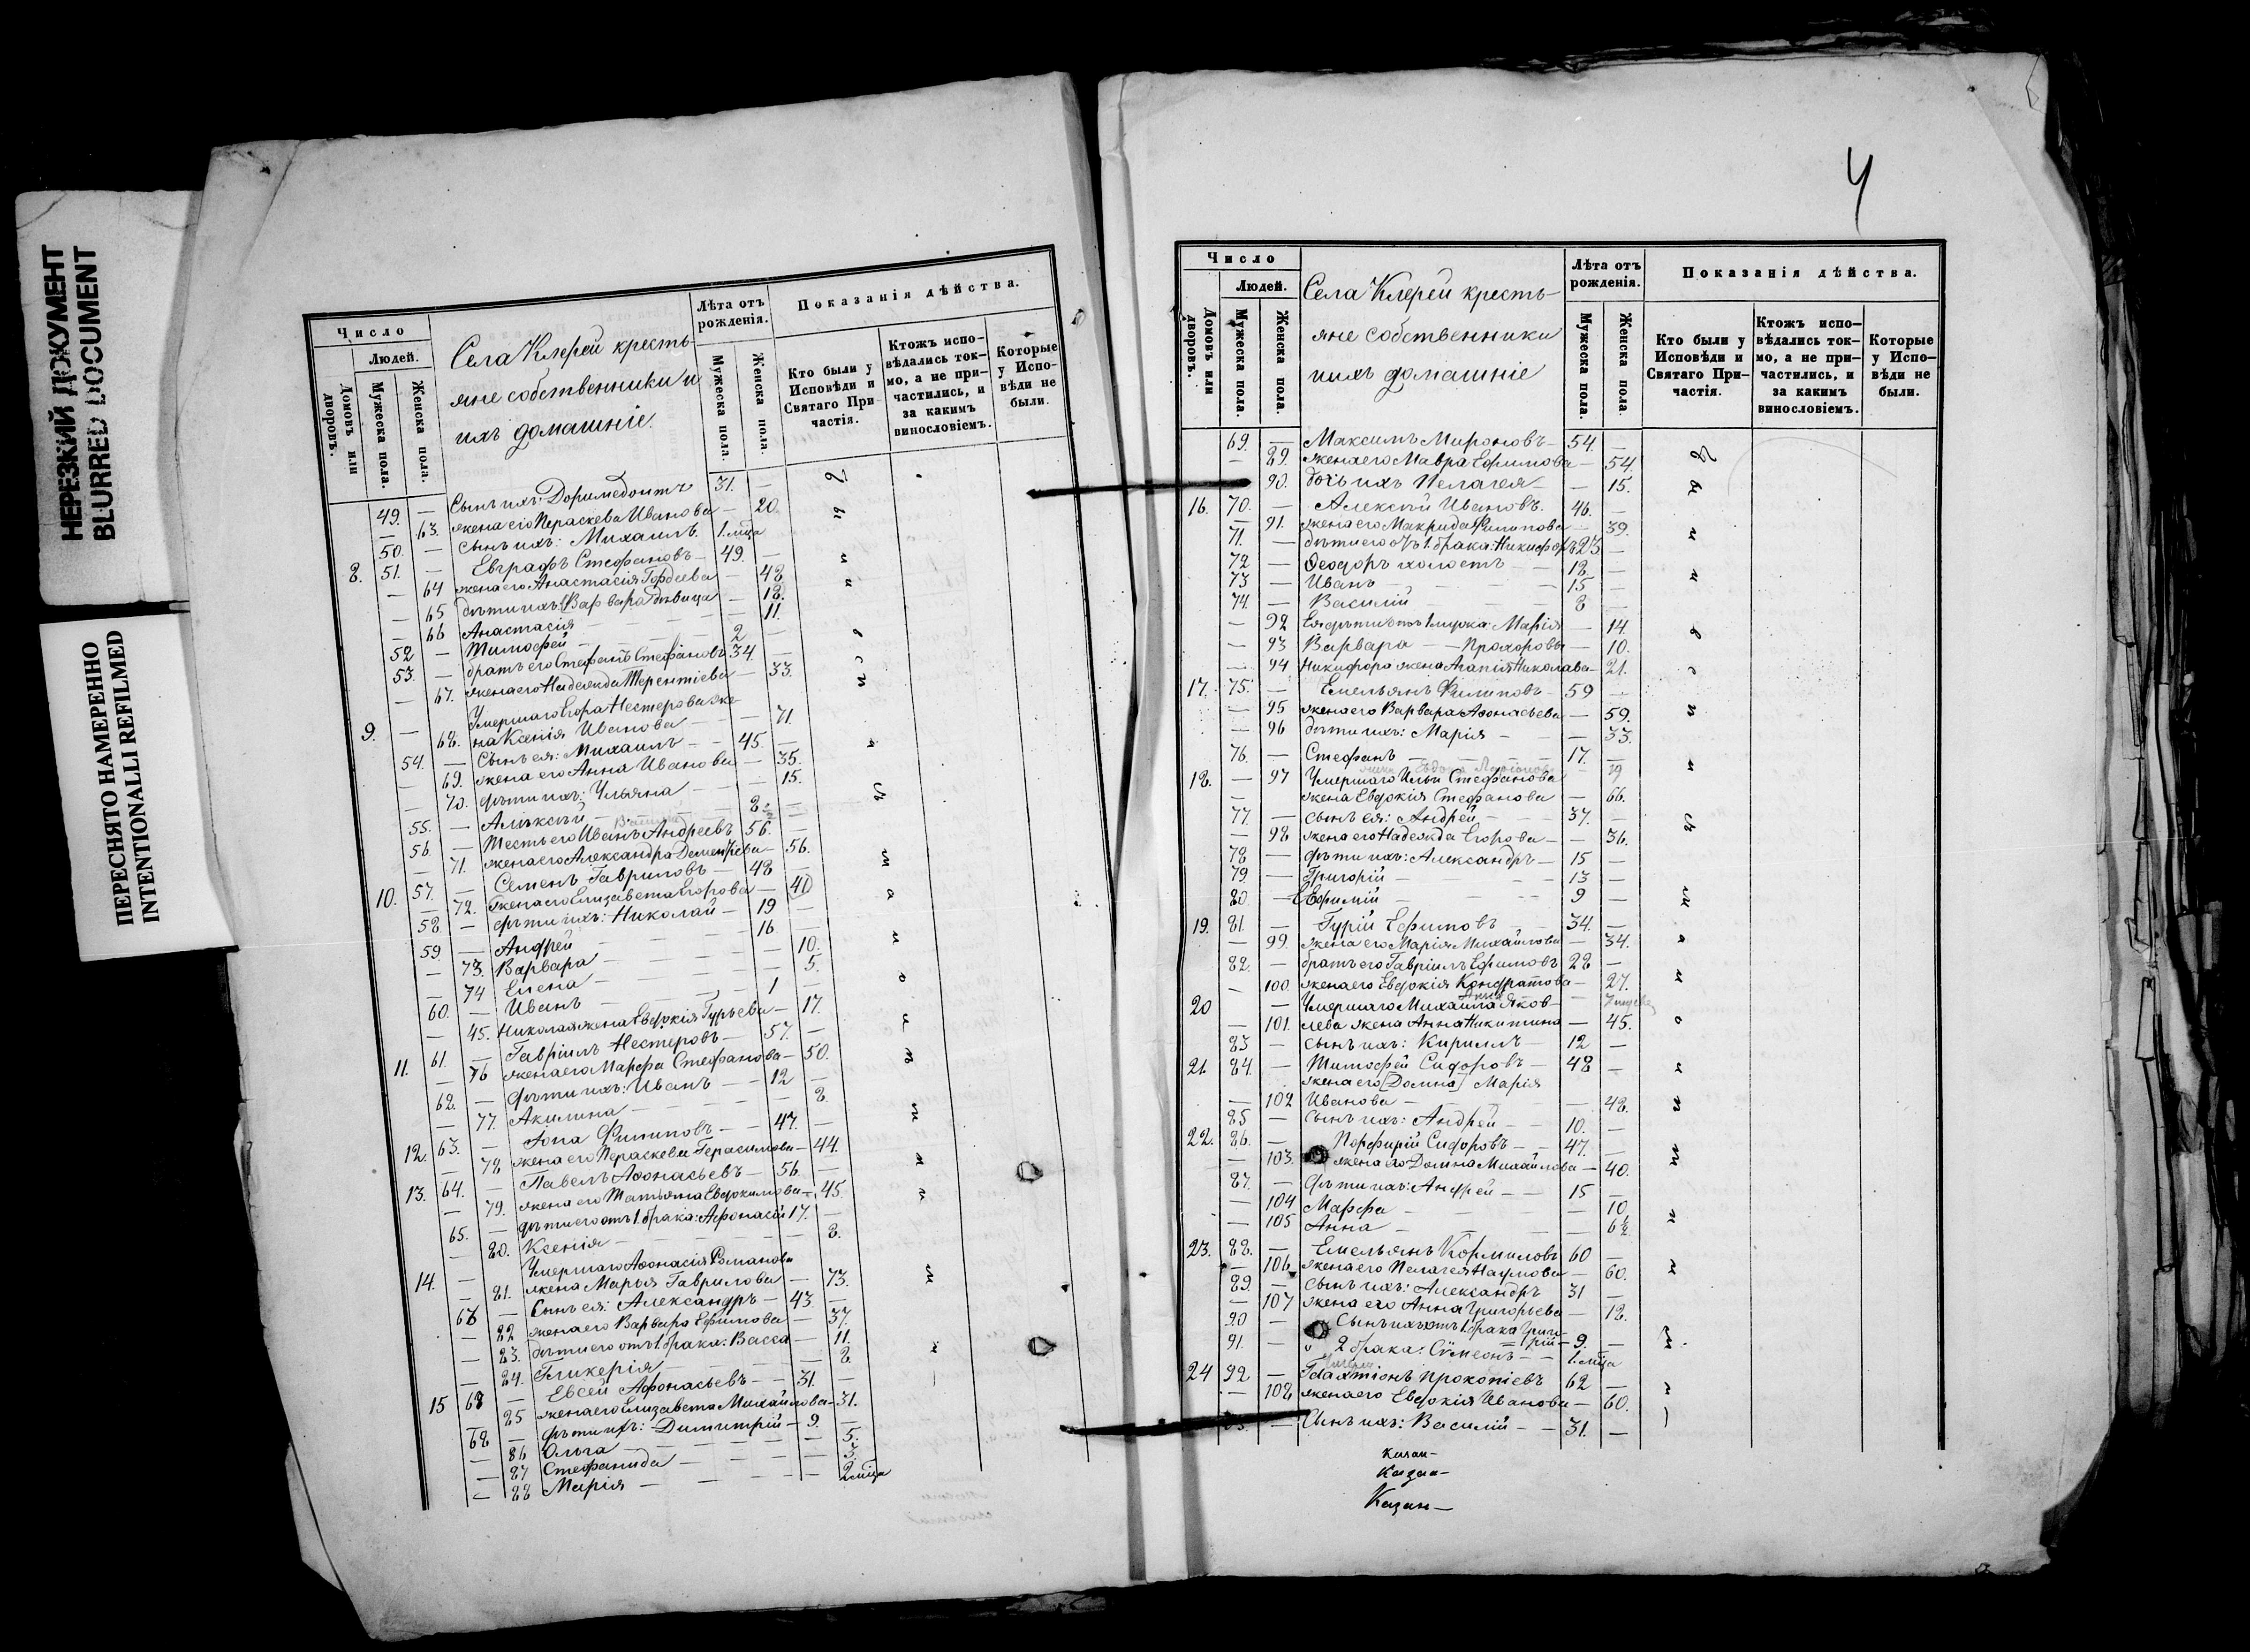 НЕРЕЗКИЙ ДОКУМЕНТ
BLURRED DOCUMENT
ПЕРЕСНЯТО НАМЕРЕННО
INTENTIONALLI REFILMED
Число
Людей.
Домовъ или дворовъ.
Мужеска пола.
Женска пола.
Села Клерей кресть-
яне собственники и
ихъ домашніе.
Лѣта отъ рожденія.
Мужеска пола.
Женска пола.
Показанія дѣйства.
Кто были у Исповѣди и Святаго При- частія.
Ктожъ испо- вѣдались ток- мо, а не при- частились, и за какимъ винословіемъ.
Которые у Испо- вѣди не были.
49. — Сынъ ихъ: Доримедонтъ 31. —
— 63. жена его Параскева Иванова — 20
50. — Сынъ ихъ: Михаилъ. 1. мѣца
8. 51. — Евграфъ Стефановъ — 49. —
— 64 жена его Анастасія Гордеева — 48
— 65 дѣти ихъ: Варвара дѣвица — 18.
— 66 Анастасія — 11.
52 — Тимофей — 2 —
53. — братъ его Стефанъ Стефановъ 34. —
— 67. жена его Надежда Терентіева — 33.
Умершаго Егора Нестерова же-
9. — 68. на Ксенія Иванова — 71.
54. — Сынъ ея: Михаилъ — 45. —
— 69. жена его Анна Иванова — 35.
— 70. дѣти ихъ: Ульяна — 15.
55. — Алексѣй — 8 —
56. — Тесть его Иванъ Андреевъ 56. —
— 71. жена его Александра Дементіева — 56.
10. 57. — Семенъ Гавриловъ — 48
— 72. жена его Елизавета Егорова — 40
58 — дѣти ихъ: Николай — 19 —
59 — Андрей — 16. —
— 73. Варвара — 10.
— 74 Елена — 5.
60. — Иванъ — 1 —
— 45. Николая жена Евдокія Гурьева — 17.
11. 61. — Гавріилъ Нестеровъ — 57. —
— 76 жена его Марфа Стефанова — 50.
62. — дѣти ихъ: Иванъ — 12 —
— 77. Акилина — 8.
12. 63. — Іона Филиповъ — 47. —
— 78 жена его Параскева Герасимова — 44.
13. 64. — Павелъ Афонасьевъ — 56. —
— 79. жена его Татьяна Евдокимова — 45.
65. — дѣти его отъ 1. брака: Афонасій 17. —
— 80. Ксенія — 8.
Умершаго Афонасія Романова
14. — 81. жена Марья Гаврилова — 73.
66 — Сынъ ея: Александръ — 43. —
— 82 жена его Варвара Ефимова — 37.
— 83. дѣти его отъ 1. брака: Васса — 11.
— 84. Гликерія — 8.
15 68 — Евсей Афонасьевъ — 31. —
— 85 жена его Елизавета Михайлова — 31.
68 — дѣти ихъ: Димитрій — 9. —
— 86 Ольга — 5.
— 87 Стефанида — 3.
— 88 Марія — 2 мѣца
4
Число
Людей.
Домовъ или дворовъ.
Мужеска пола.
Женска пола.
Села Клерей кресть-
яне собственники
ихъ домашніе
Лѣта отъ рожденія.
Мужеска пола.
Женска пола.
Показанія дѣйства.
Кто были у Исповѣди и Святаго При- частія.
Ктожъ испо- вѣдались ток- мо, а не при- частились, и за какимъ винословіемъ.
Которые у Испо- вѣди не были.
69. — Максимъ Мироновъ — 54. —
— 89. жена его Мавра Ефимова — 54.
90. дочь ихъ Пелагея — 15.
16. 70. — Алексѣй Ивановъ. 46. —
— 91. жена его Макрида Филипова — 39.
71. — дѣти его отъ 1. брака: Никифоръ 23 —
72 — Феодоръ холостъ — 18 —
73 — Иванъ — 15 —
74. — Василій — 8 —
— 92 Ея дѣти отъ 1 мужа: Марія — 14.
— 93 Варвара — Прохоровы — 10.
— 94 Никифора жена Агапія Николаева — 21.
17. 75. — Емельянъ Филиповъ — 59 —
— 95 жена его Варвара Афонасьева — 59.
— 96 дѣти ихъ: Марія — 33.
76. — Стефанъ — 17. —
18. — 97 Умершаго Ильи Стефанова
жена Евдокія Стефанова — 66.
77. — сынъ ея: Андрей — 37. —
— 98 жена его Надежда Егорова — 36.
78 — дѣти ихъ: Александръ — 15 —
79. — Григорій — 13 —
80. — Евфимій — 9 —
19. 81. — Гурій Ефимовъ — 34. —
— 99. жена его Марія Михайлова — 34.
82. — братъ его Гавріилъ Ефимовъ 28 —
— 100 жена его Евдокія Кондратова — 27.
20 — Умершаго Михаила Яков-
— 101. лева жена Анна Никитина — 45.
83 — сынъ ихъ: Кириллъ — 12 —
21. 84. — Тимофей Сидоровъ — 48 —
жена его [Домна] Марія
— 102 Иванова — 48.
85 — Сынъ ихъ: Андрей — 10. —
22. 86. — Порфирій Сидоровъ — 47. —
— 103. жена его Домна Михайлова — 40.
87. — дѣти ихъ: Андрей — 15 —
— 104 Марфа — 10
— 105 Анна — 6½
23. 88. — Емельянъ Кормиловъ 60 —
— 106 жена его Пелагея Наумова — 60.
89. — Сынъ ихъ: Александръ 31 —
— 107 жена его Анна Григорьева — 18.
90 — Сынъ ихъ отъ 1. брака Григо-
рій — 9. —
91. — " 2 брака: Сѵмеонъ — 1. мѣца
24 92 — Галактіонъ Прокопіевъ 62 —
— 108 жена его Евдокія Иванова — 60.
— Сынъ ихъ: Василій — 31. —
Казан—